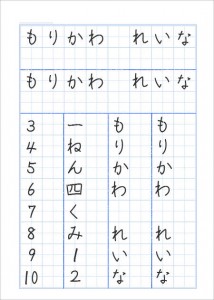 もりかわ れいな
もりかわ れいな
3 一 も も
4 ね り り
5 ん か か
6 四 わ わ
7 く
8 み れ れ
9 1 い い
10 2 な な